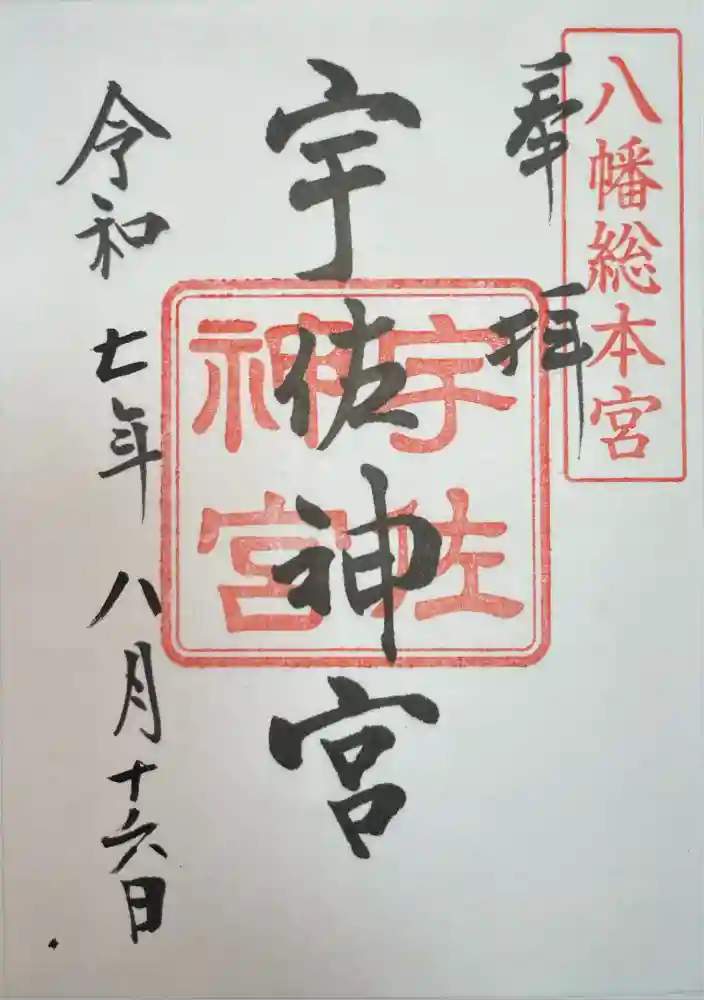 八幡総本宮
奉拝
宇佐神宮
宇佐
神宮
令和七年八月十六日